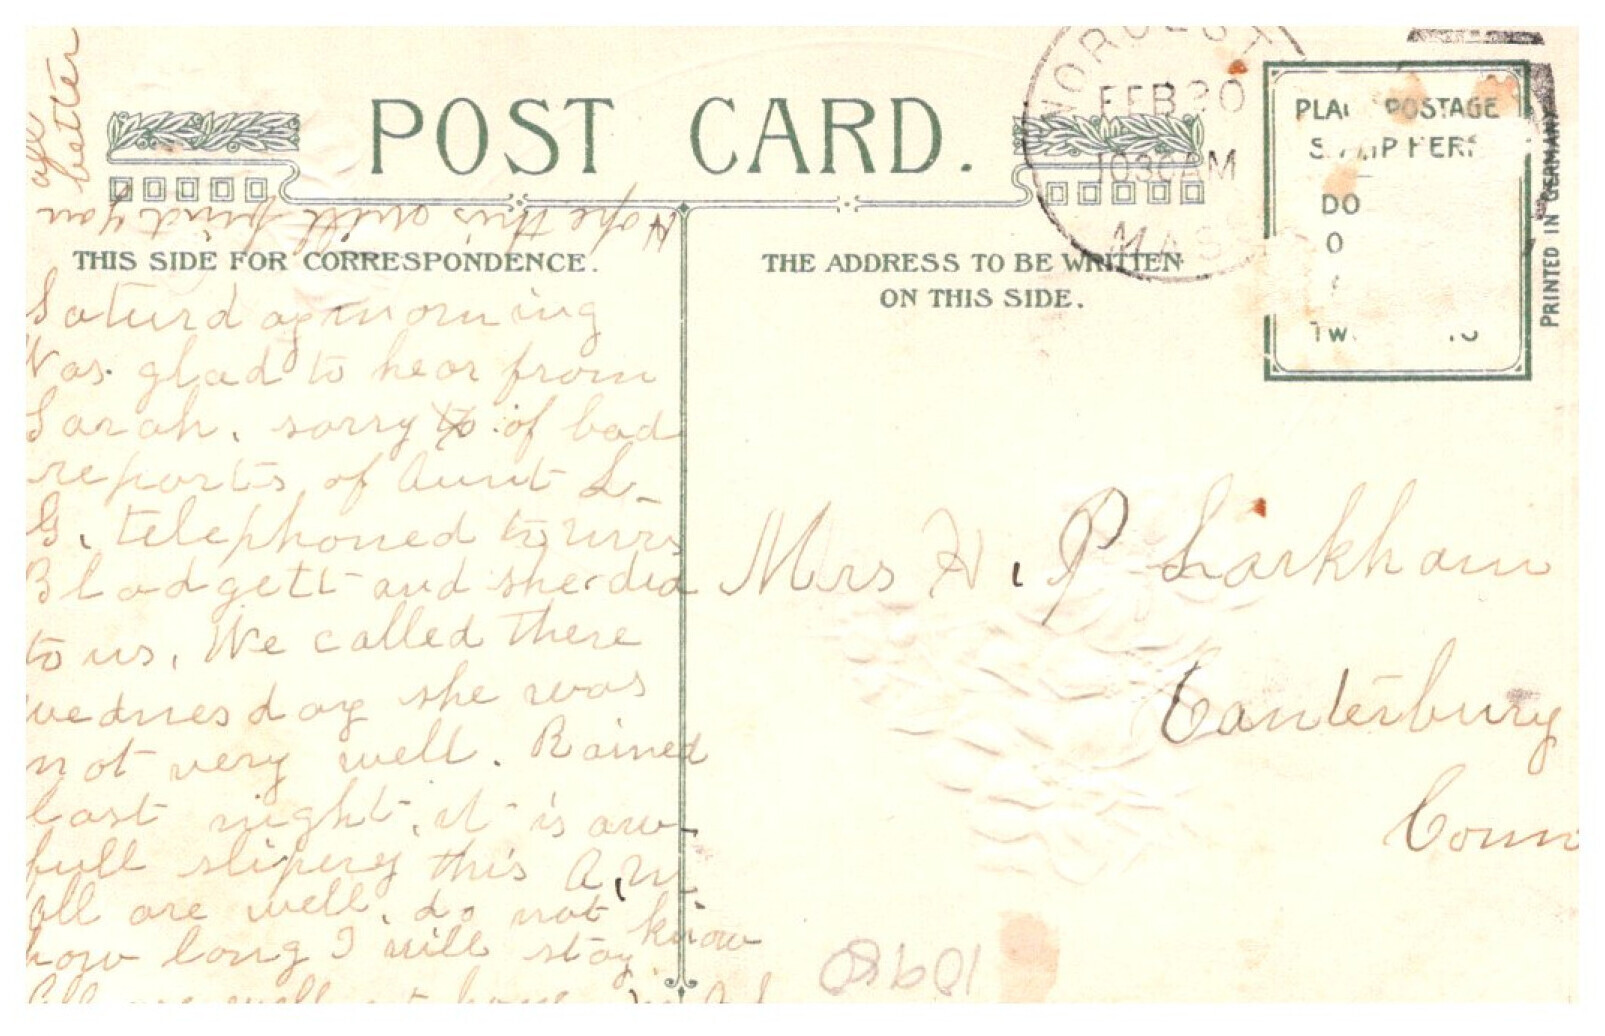 POST CARD.
WORCEST
FEB 20
1030AM
MASS
PLA POSTAGE
HER
DO
O
TW
PRINTED IN GERMANY
THIS SIDE FOR CORRESPONDENCE.
THE ADDRESS TO BE WRITTEN
ON THIS SIDE.
Saturday morning
Was glad to hear from
Sarah. sorry to of bad
reports of Aunt L-
G. telephoned to Mrs
Blodgett and she did
to us. We called there
wednesday she was
not very well. Rained
last night, it is aw-
full slipery this A.M
All are well. do not know
how long I will stay
All are well at home
Hope this will find you
all
better
Mrs H. P Larkham
Canterbury
Conn